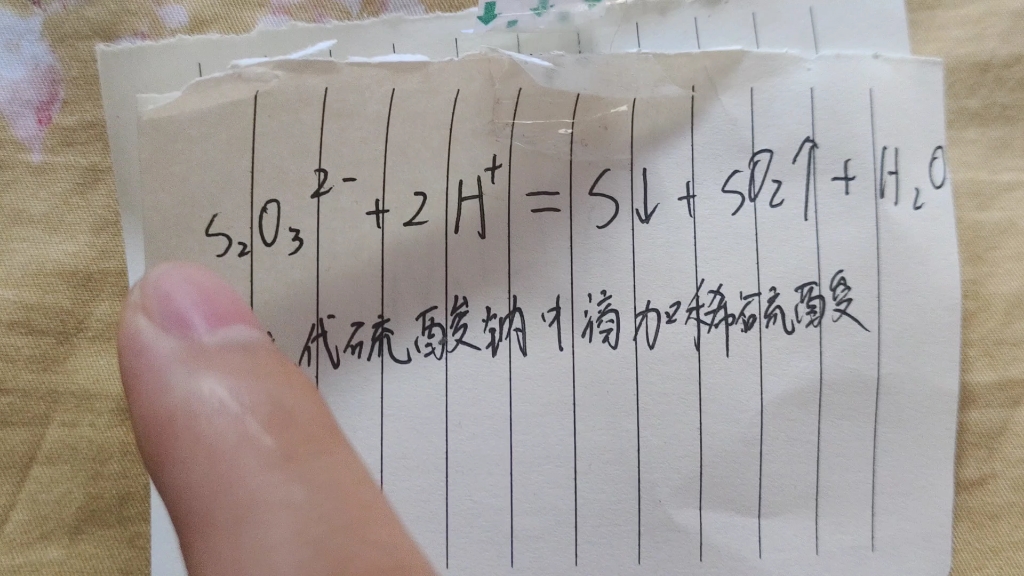 S₂O₃²⁻ + 2H⁺ = S↓ + SO₂↑ + H₂O
代硫酸钠中滴加稀硫酸